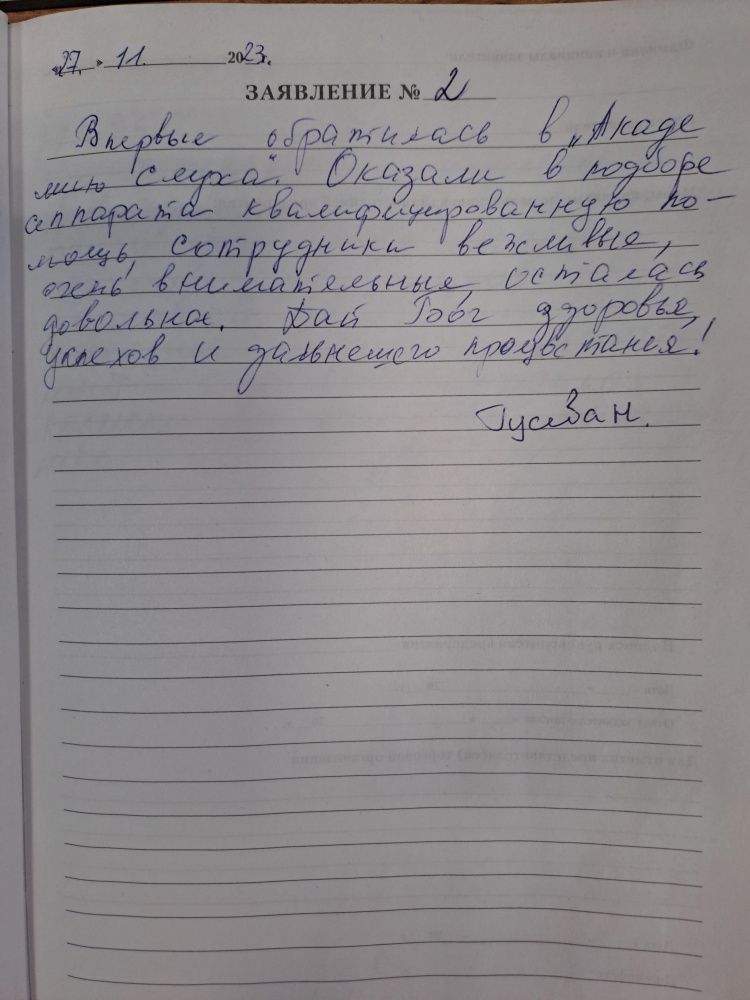 «27.» 11. 2023г.
ЗАЯВЛЕНИЕ № 2
Впервые обратилась в „Акаде
мию слуха". Оказали в подборе
аппарата квалифицированную по-
мощь, сотрудники вежливые,
очень внимательные, осталась
довольна. Дай Бог здоровья,
успехов и дальнейшего процветания!